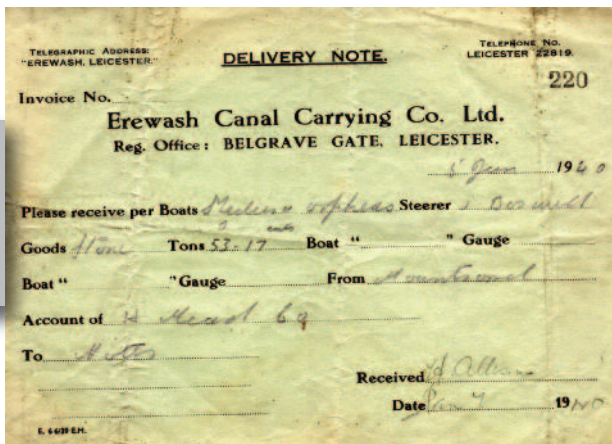 TELEGRAPHIC ADDRESS: TELEPHONE NO.
"EREWASH, LEICESTER." DELIVERY NOTE. LEICESTER 22819.
220
Invoice No.
Erewash Canal Carrying Co. Ltd.
Reg. Office: BELGRAVE GATE, LEICESTER.
5 Jan 1940
Please receive per Boats Steerer
Goods Stone Tons 53.17 Boat " " Gauge
Boat " " Gauge From Mountsorrel
Account of H
To Notts
Received
Date Jan 7 1940
E. 6 6/39 E.H.